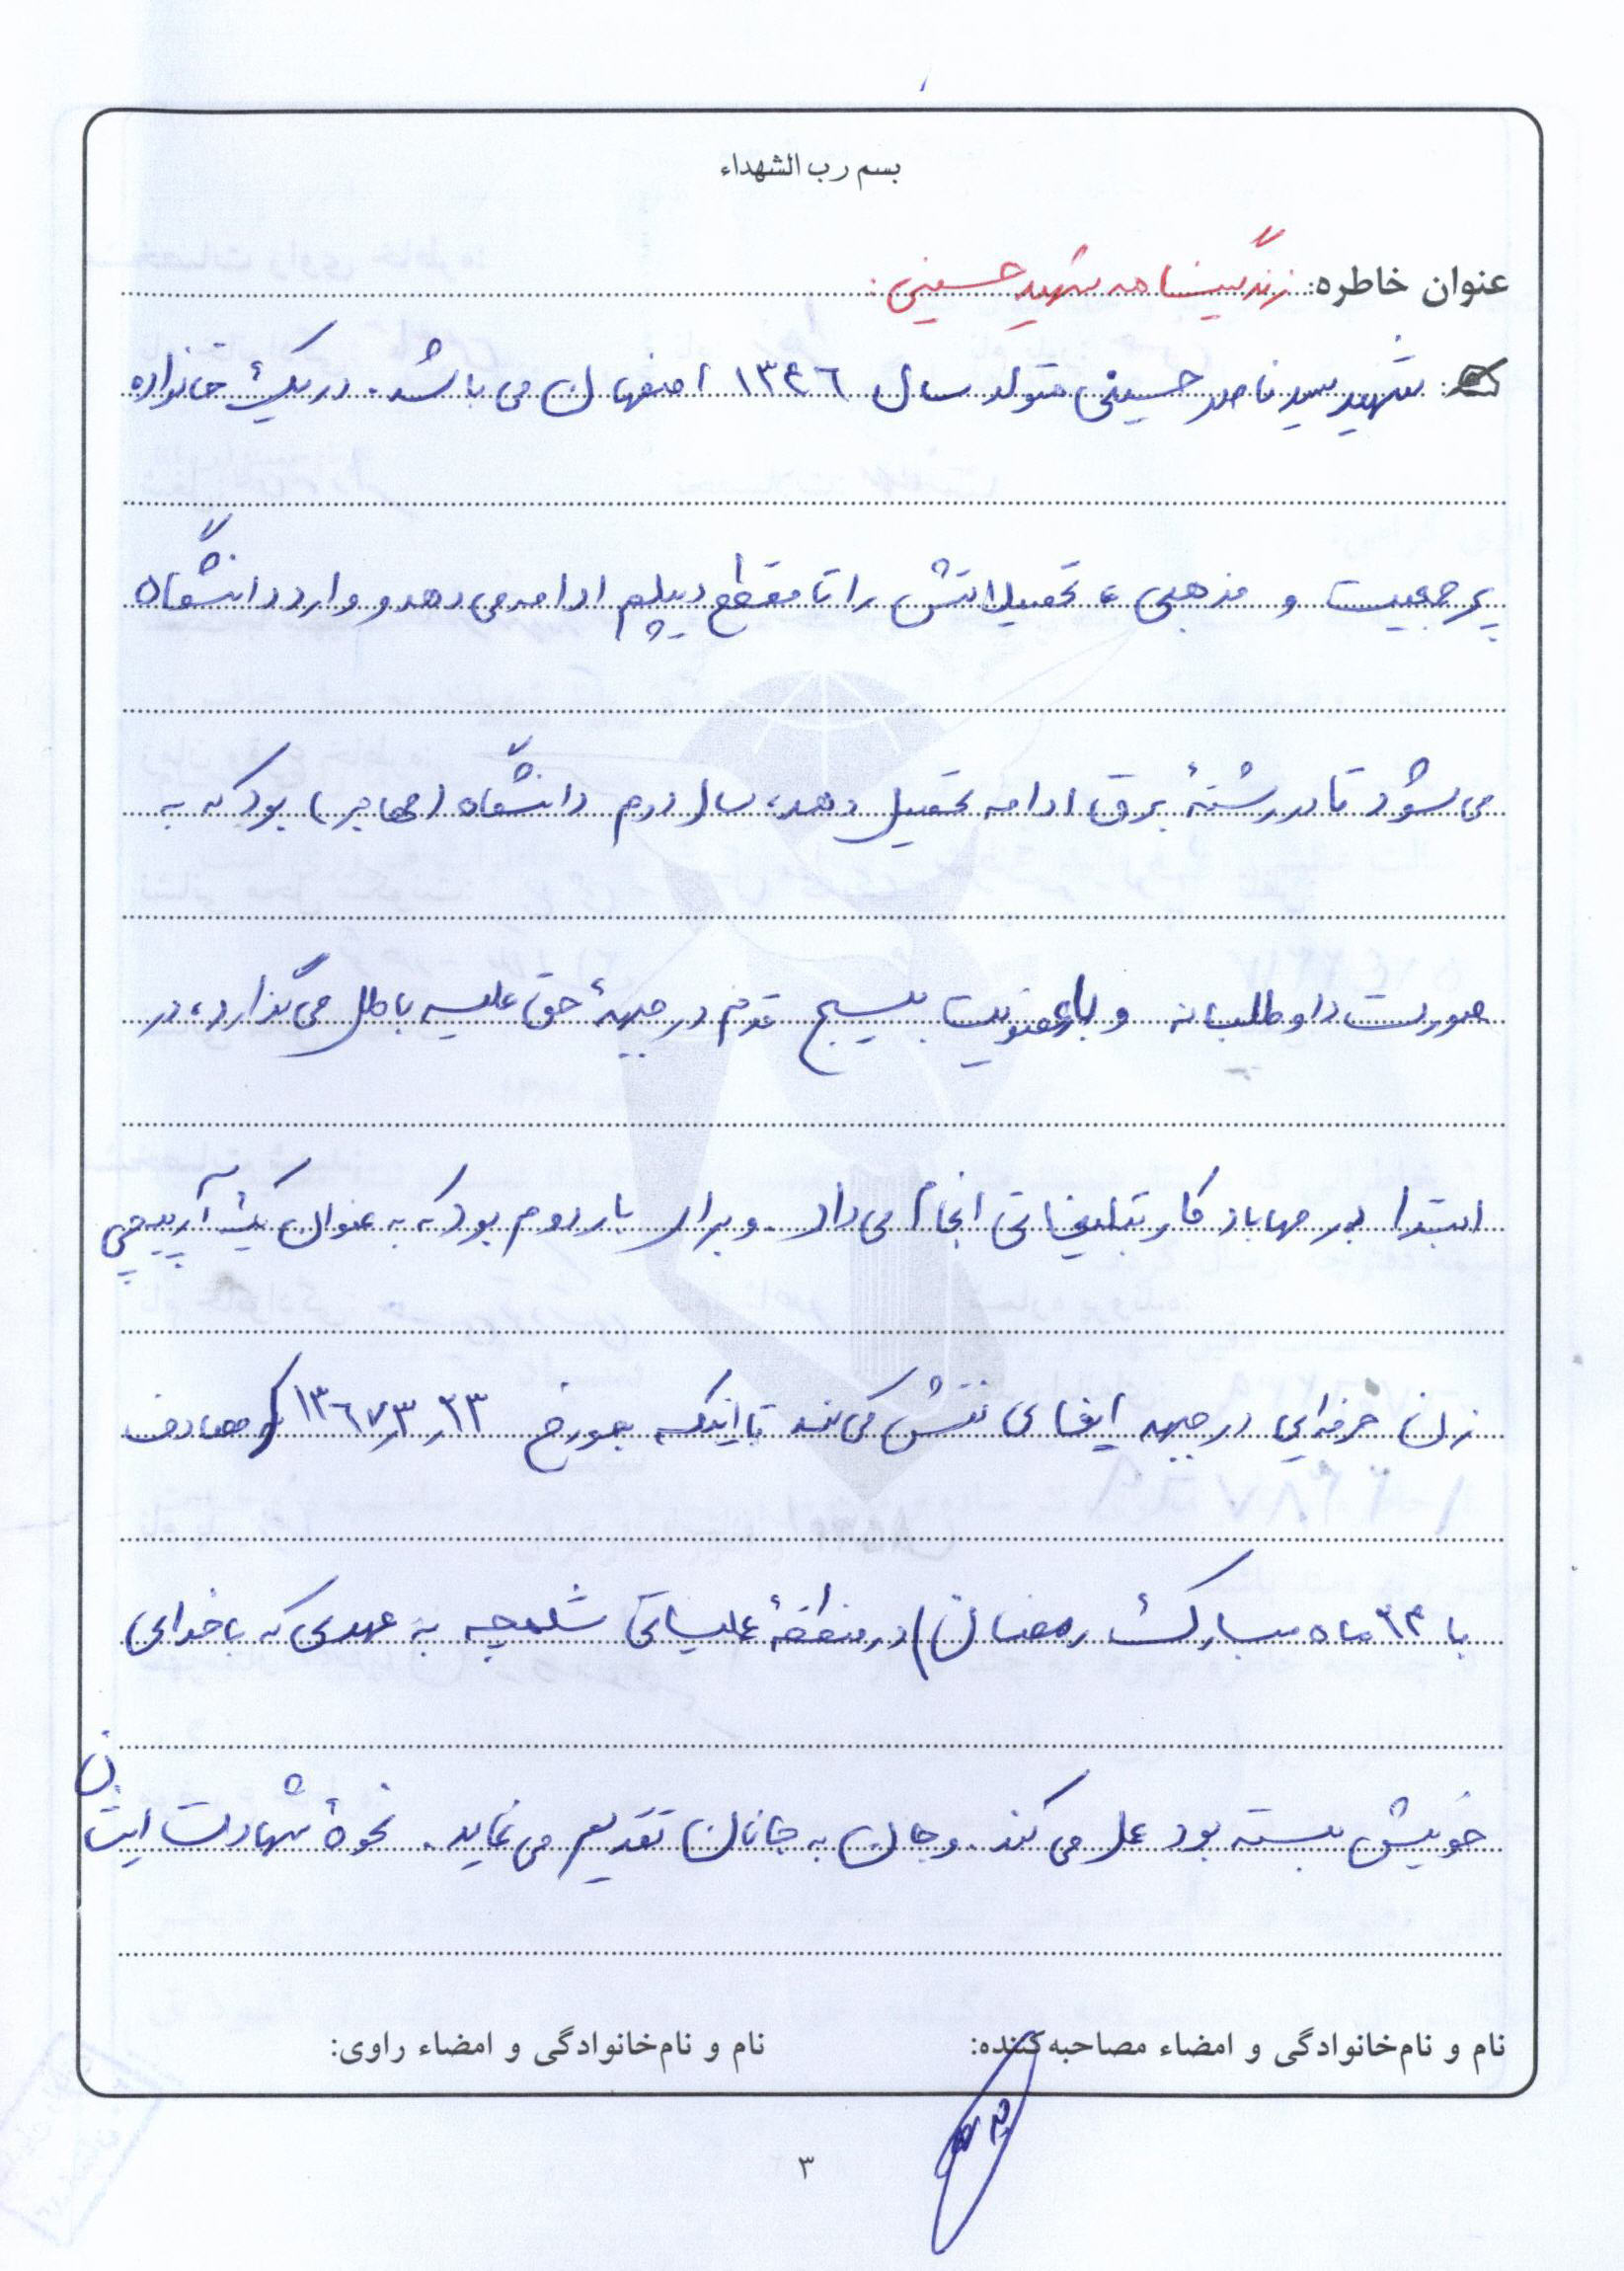 بسم رب الشهداء
عنوان خاطره: زندگینامه شهید حسینی:
شهید سید ناصر حسینی متولد سال ۱۳۴۶ اصفهان می باشد. در یک خانواده
پر جمعیت و مذهبی، تحصیلاتش را تا مقطع دیپلم ادامه می دهد و وارد دانشگاه
می شود تا در رشتهٔ برق ادامه تحصیل دهد، سال دوم دانشگاه (مهاجر) بود که به
صورت داوطلبانه و با عضویت بسیج قدم در جبههٔ حق علیه باطل می گذارد، در
ابتدا در مهاباد کار تبلیغاتی انجام می داد. و برای بار دوم بود که به عنوان یک آرپیجی
زن حرفه‌ایی در جبهه ایفای نقش می کند تا اینکه بمورخ ۲۳ر۳ر۱۳۶۷ مصادف
با ماه مبارک رمضان) در منطقهٔ عملیاتی شلمچه به عهدی که با خدای
خویش بسته بود عمل می کند. و جان به جانان تقدیم می نماید. نحوهٔ شهادت ایشان
نام و نام‌خانوادگی و امضاء مصاحبه‌کننده: نام و نام‌خانوادگی و امضاء راوی:
۳